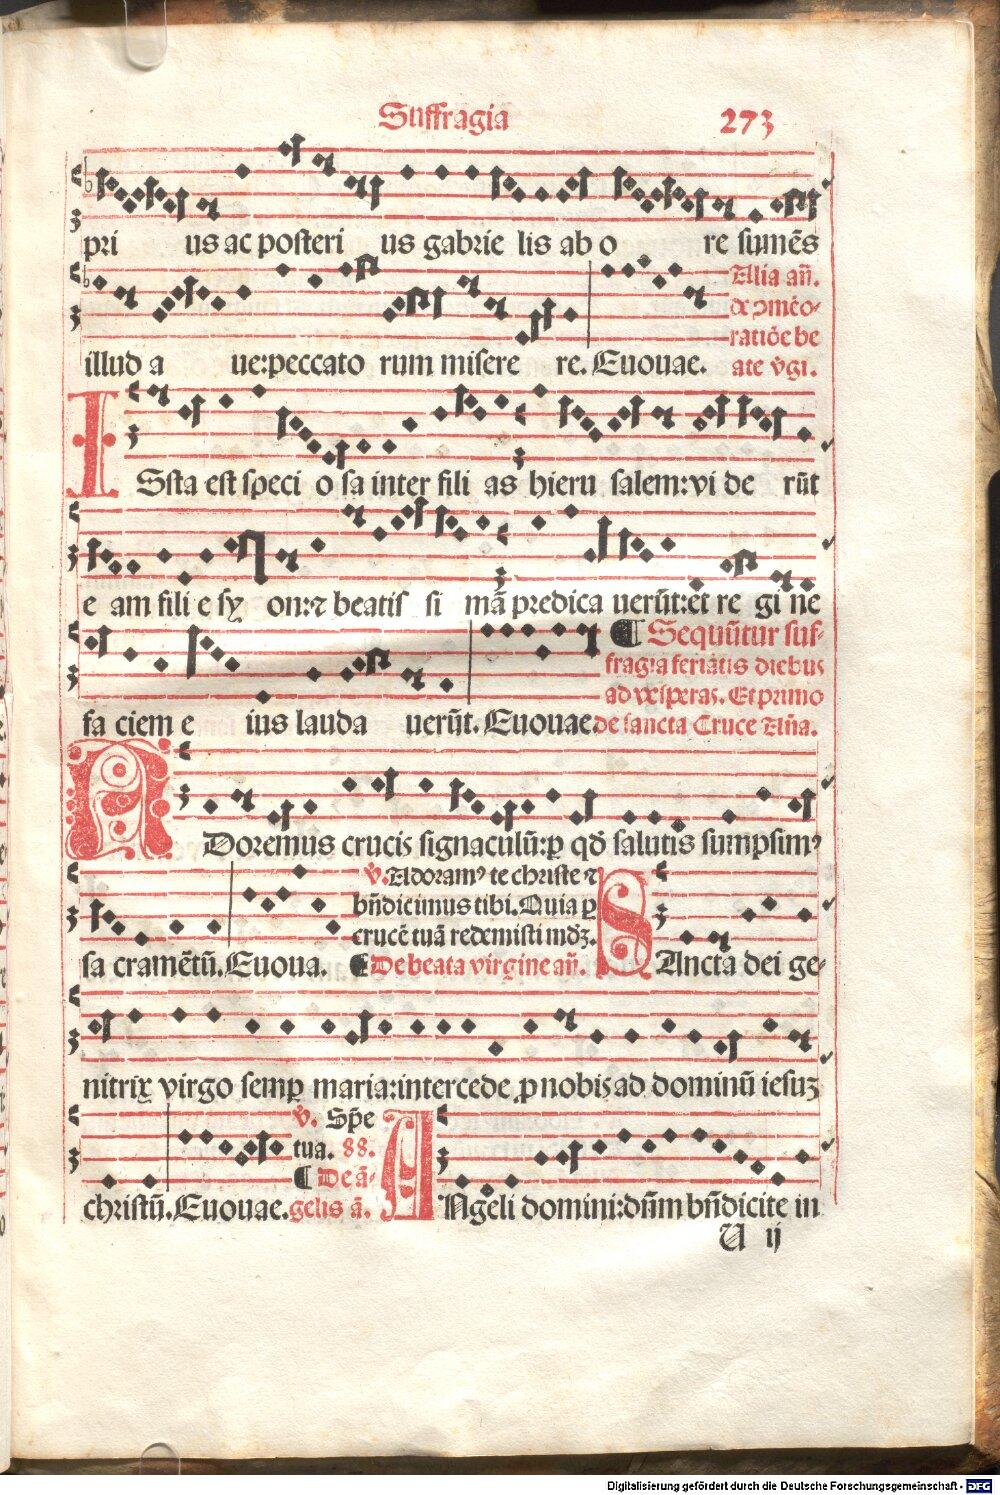 Suffragia 273
pri us ac posteri us gabrie lis ab o re sumēs
Alia añ.
de ↄmēo-
ratiōe be
illud a ue:peccato rum misere re. Euouae. ate v̄gi.
ISsta est speci o sa inter fili as hieru salem:vi de rūt
e am fili e sy on:⁊ beatis si mā predica uerūt:et re gi ne
¶ Sequūtur suf-
fragia feriatis diebus
ad vesperas. Et primo
fa ciem e ius lauda uerūt. Euouae. de sancta Cruce Añ̄a.
ADoremus crucis signaculū:ꝑ qđ salutis sumpsimꝰ
℣. Adoramꝰ te christe ⁊
bn̄dicimus tibi. Quia ꝑ
crucē tuā redemisti mdꝫ.
sa cramētū. Euoua. ¶ De beata virgine añ. SAncta dei ge-
nitrix virgo semꝑ maria:intercede ꝓ nobis ad dominū iesuꝫ
℣. Sp̄e
tua. 88.
¶ De ā-
christū. Euouae. gelis ā. ANgeli domini:dn̄m bn̄dicite in
U ij
Digitalisierung gefördert durch die Deutsche Forschungsgemeinschaft - DFG